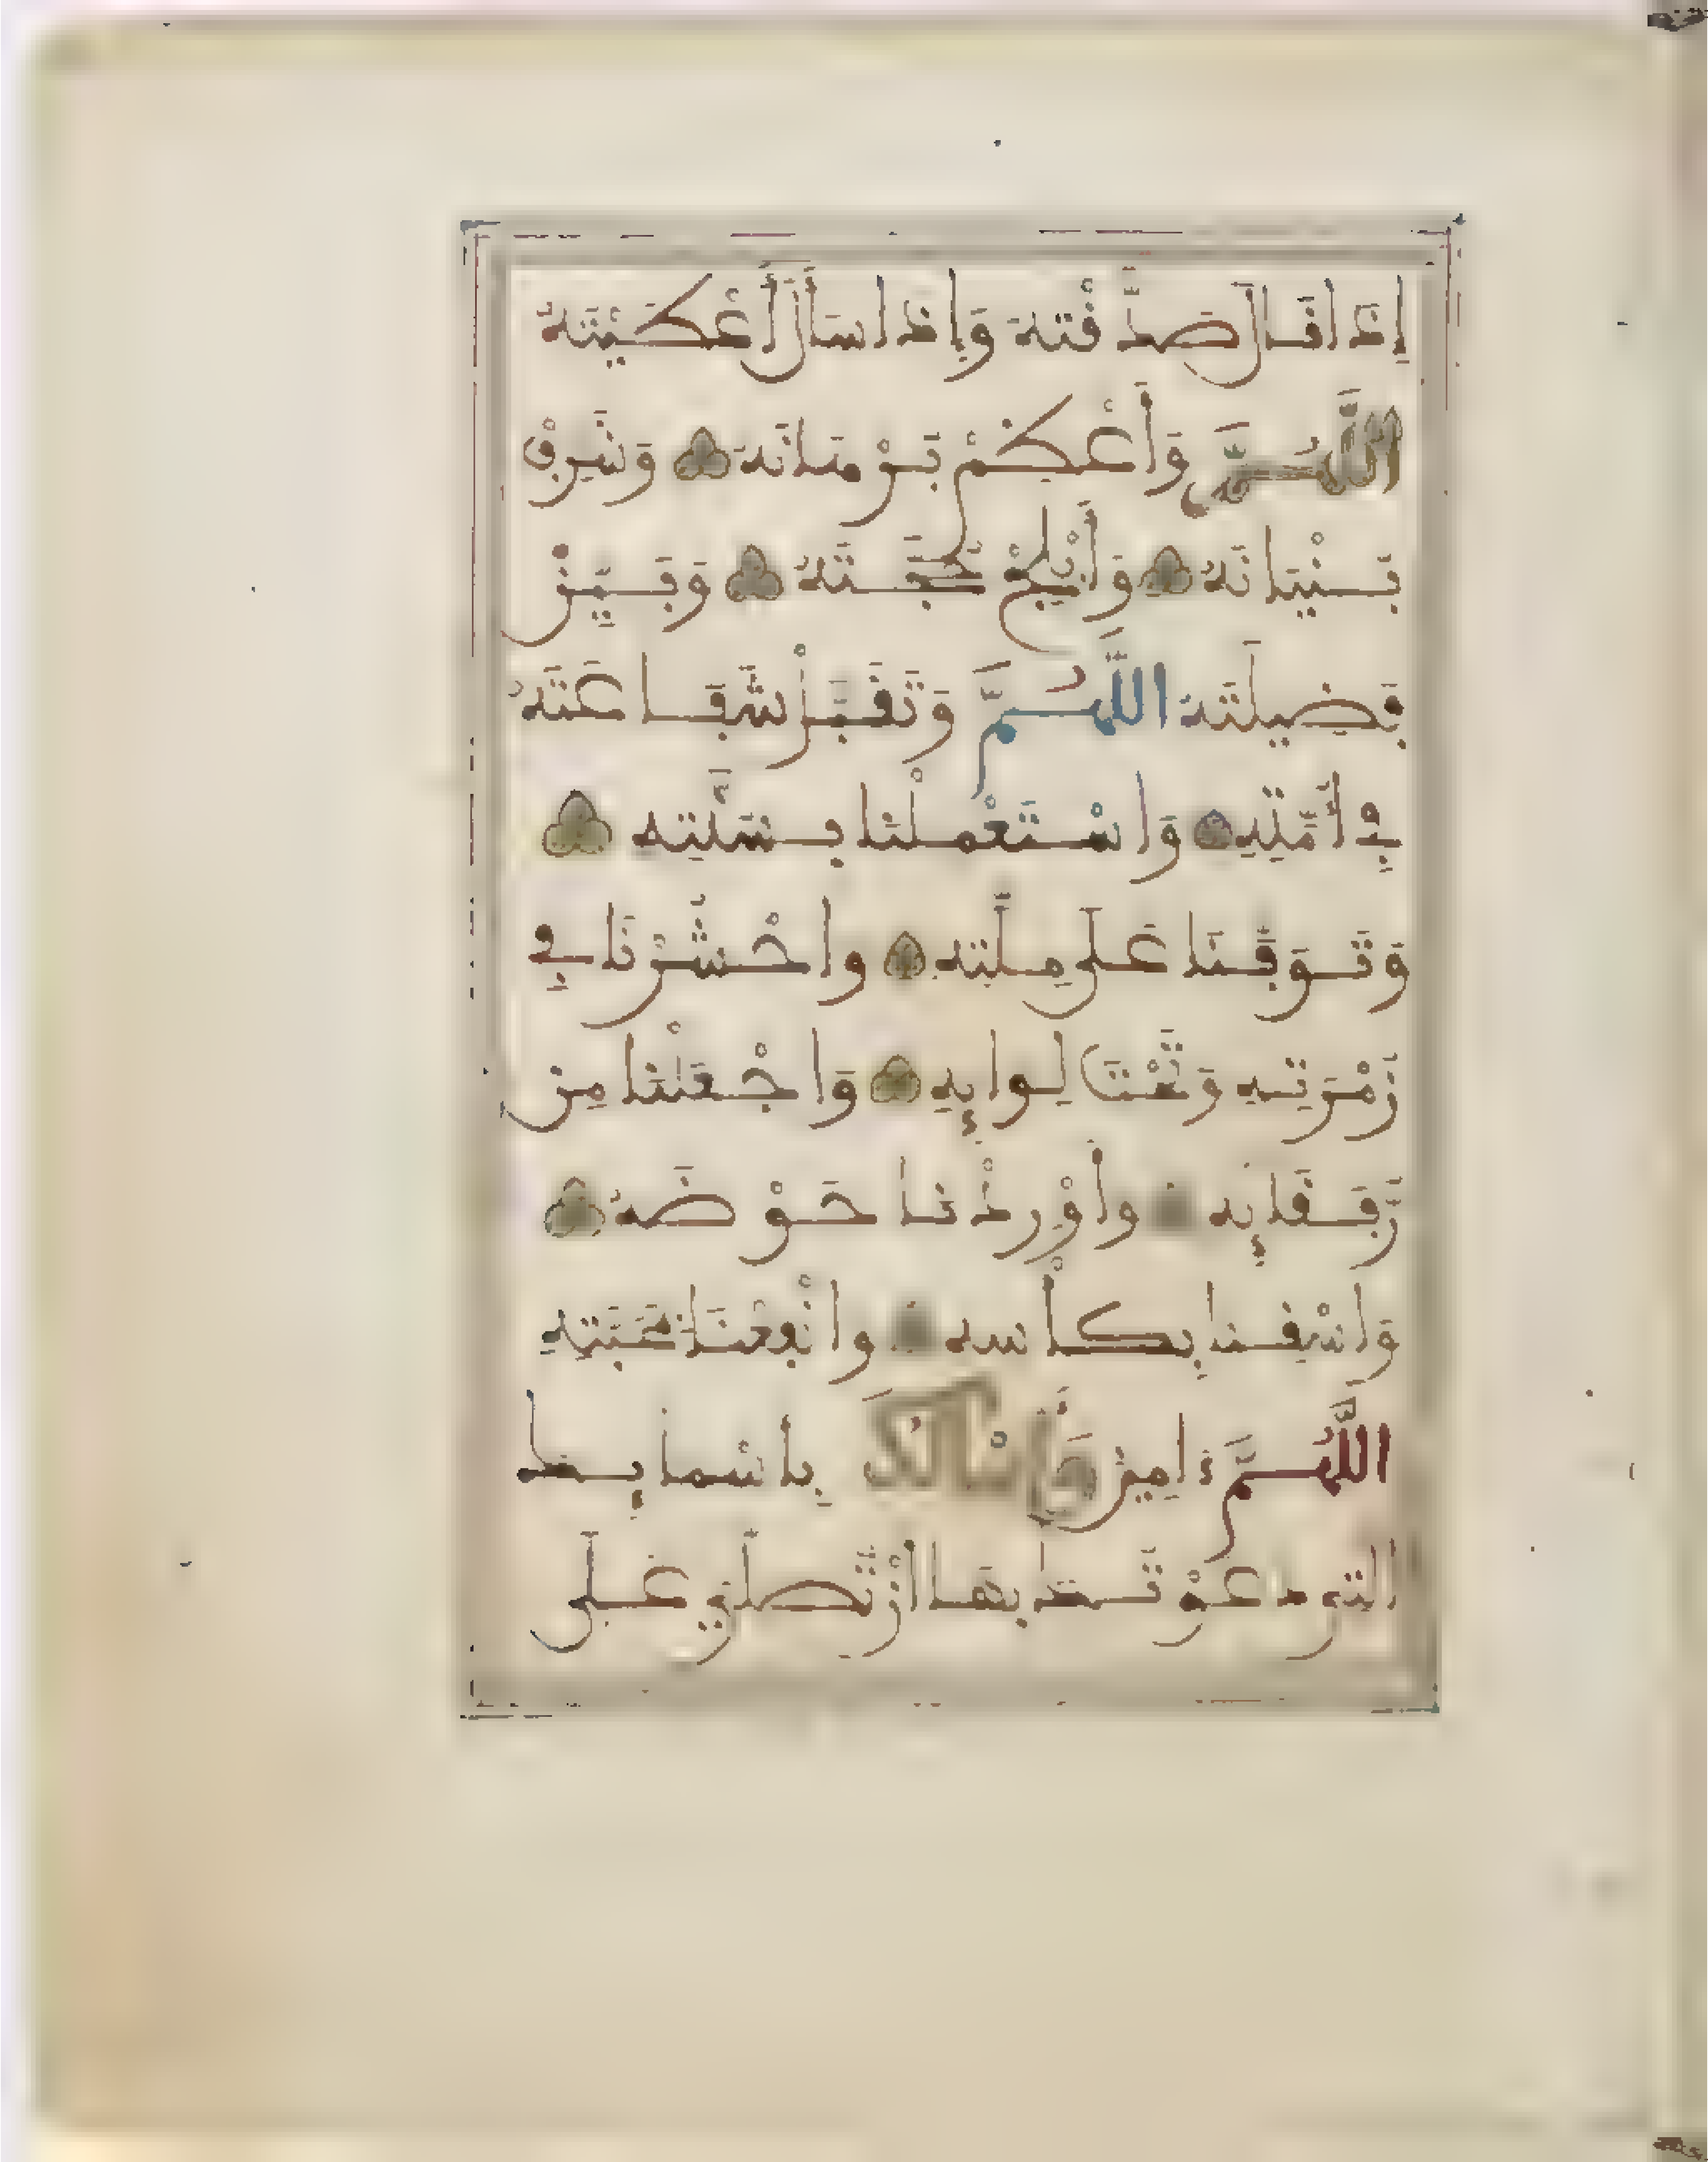 إِذَا قَالَ صَدَّقْتَهُ وَإِذَا سَأَلَ أَعْطَيْتَهُ
اللَّهُمَّ وَأَعْظِمْ بُرْهَانَهُ وَشَرِّفْ
بُنْيَانَهُ وَأَبْلِجْ حُجَّتَهُ وَبَيِّنْ
فَضِيلَتَهُ اللَّهُمَّ وَتَقَبَّلْ شَفَاعَتَهُ
فِي أُمَّتِهِ وَاسْتَعْمِلْنَا بِسُنَّتِهِ
وَتَوَفَّنَا عَلَى مِلَّتِهِ وَاحْشُرْنَا فِي
زُمْرَتِهِ وَتَحْتَ لِوَائِهِ وَاجْعَلْنَا مِنْ
رُفَقَائِهِ وَأَوْرِدْنَا حَوْضَهُ
وَاسْقِنَا بِكَأْسِهِ وَانْفَعْنَا بِمَحَبَّتِهِ
اللَّهُمَّ ءَامِينَ وَأَسْأَلُكَ بِأَسْمَائِكَ
التي دعوتك بها أن تصلي على